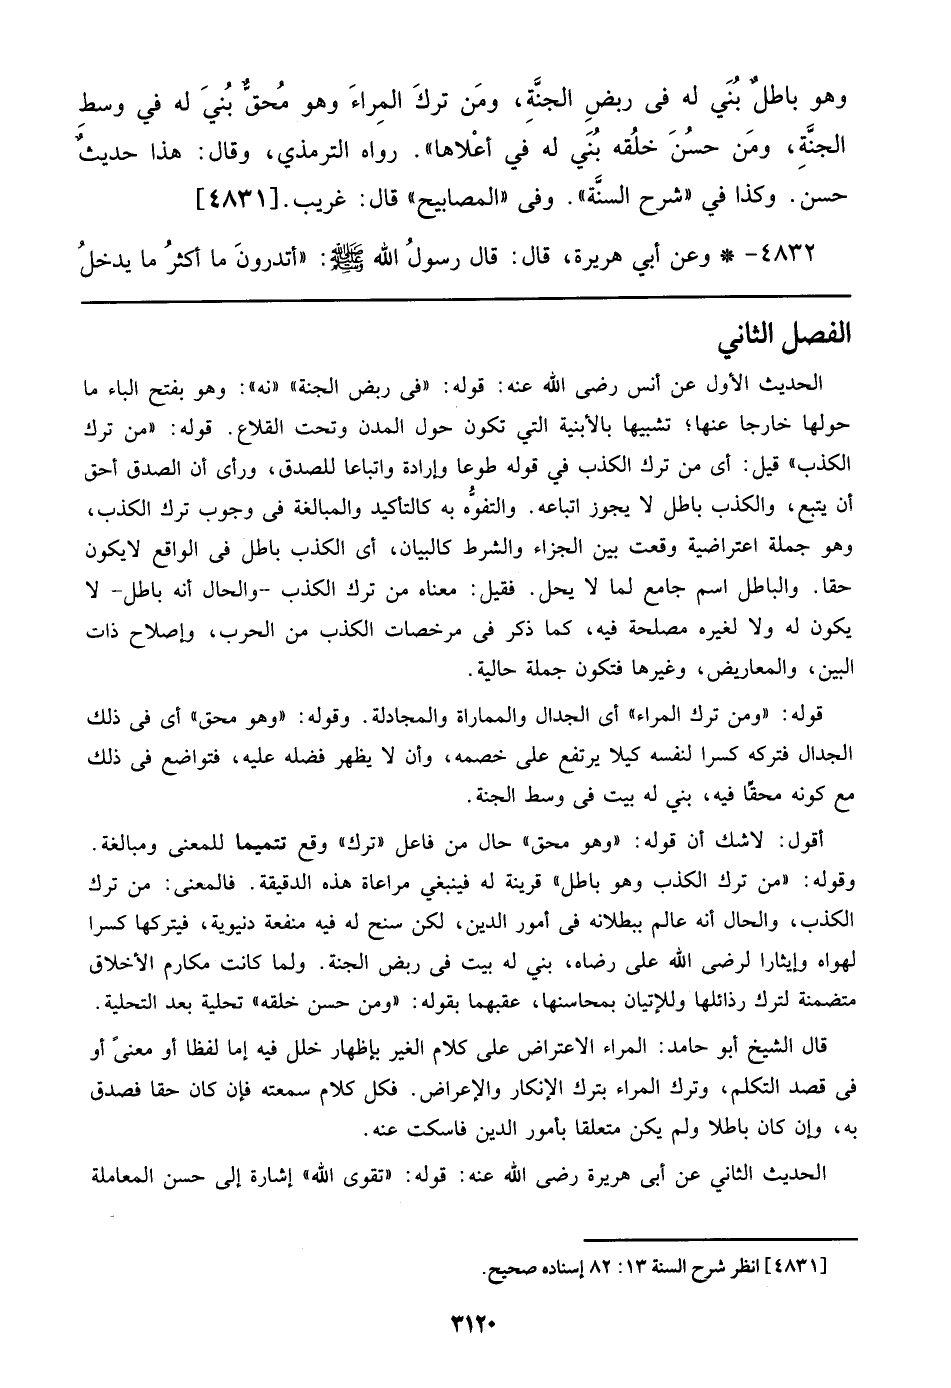 وهو باطلٌ بُنَي له فى ربضِ الجنَّةِ، ومَن تركَ المِراءَ وهو مُحقٌّ بُنيَ له في وسطِ
الجنَّةِ، ومَن حسُنَ خلُقه بُنَي له في أعْلاها». رواه الترمذي، وقال: هذا حديثٌ
حسن. وكذا في «شرح السنَّة». وفى «المصابيح» قال: غريب.[٤٨٣١]
٤٨٣٢- * وعن أبي هريرة، قال: قال رسولُ الله ﷺ: «أتدرونَ ما أكثرُ ما يدخلُ
الفصل الثاني
الحديث الأول عن أنس رضى الله عنه: قوله: «فى ربض الجنة» «نه»: وهو بفتح الباء ما
حولها خارجا عنها؛ تشبيها بالأبنية التي تكون حول المدن وتحت القلاع. قوله: «من ترك
الكذب» قيل: أى من ترك الكذب في قوله طوعا وإرادة واتباعا للصدق، ورأى أن الصدق أحق
أن يتبع، والكذب باطل لا يجوز اتباعه. والتفوُّه به كالتأكيد والمبالغة فى وجوب ترك الكذب،
وهو جملة اعتراضية وقعت بين الجزاء والشرط كالبيان، أى الكذب باطل فى الواقع لايكون
حقا. والباطل اسم جامع لما لا يحل. فقيل: معناه من ترك الكذب -والحال أنه باطل- لا
يكون له ولا لغيره مصلحة فيه، كما ذكر فى مرخصات الكذب من الحرب، وإصلاح ذات
البين، والمعاريض، وغيرها فتكون جملة حالية.
قوله: «ومن ترك المراء» أى الجدال والمماراة والمجادلة. وقوله: «وهو محق» أى فى ذلك
الجدال فتركه كسرا لنفسه كيلا يرتفع على خصمه، وأن لا يظهر فضله عليه، فتواضع فى ذلك
مع كونه محقًا فيه، بني له بيت فى وسط الجنة.
أقول: لاشك أن قوله: «وهو محق» حال من فاعل «ترك» وقع تتميما للمعنى ومبالغة.
وقوله: «من ترك الكذب وهو باطل» قرينة له فينبغي مراعاة هذه الدقيقة. فالمعنى: من ترك
الكذب، والحال أنه عالم ببطلانه فى أمور الدين، لكن سنح له فيه منفعة دنيوية، فيتركها كسرا
لهواه وإيثارا لرضى الله على رضاه، بني له بيت فى ربض الجنة. ولما كانت مكارم الأخلاق
متضمنة لترك رذائلها وللإتيان بمحاسنها، عقبهما بقوله: «ومن حسن خلقه» تحلية بعد التحلية.
قال الشيخ أبو حامد: المراء الاعتراض على كلام الغير بإظهار خلل فيه إما لفظا أو معنىً أو
فى قصد التكلم، وترك المراء بترك الإنكار والإعراض. فكل كلام سمعته فإن كان حقا فصدق
به، وإن كان باطلا ولم يكن متعلقا بأمور الدين فاسكت عنه.
الحديث الثاني عن أبى هريرة رضى الله عنه: قوله: «تقوى الله» إشارة إلى حسن المعاملة
[٤٨٣١] انظر شرح السنة ١٣: ٨٢ إسناده صحيح.
٣١٢٠